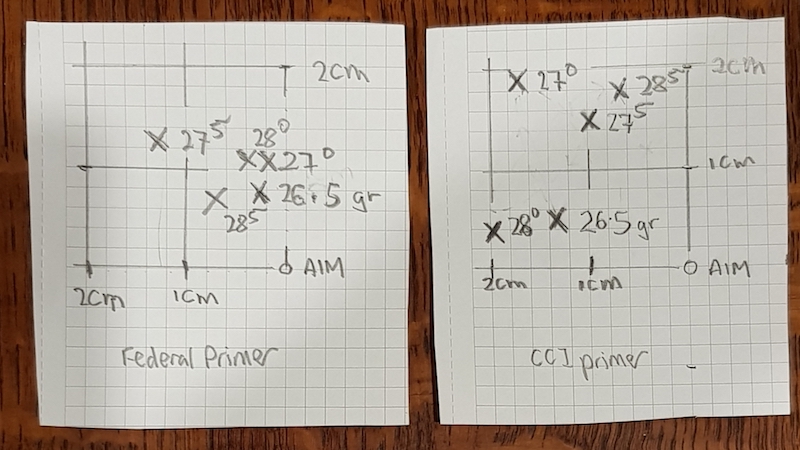 2cm
X 27⁵ 28⁰
XX27⁰
X X 26.5 gr
28⁵
AIM
2cm 1cm
Federal Primer
2cm
X 27⁰ X 28⁵
X 27⁵
1cm
X 28⁰ X 26.5 gr
AIM
2cm 1cm
CCI primer